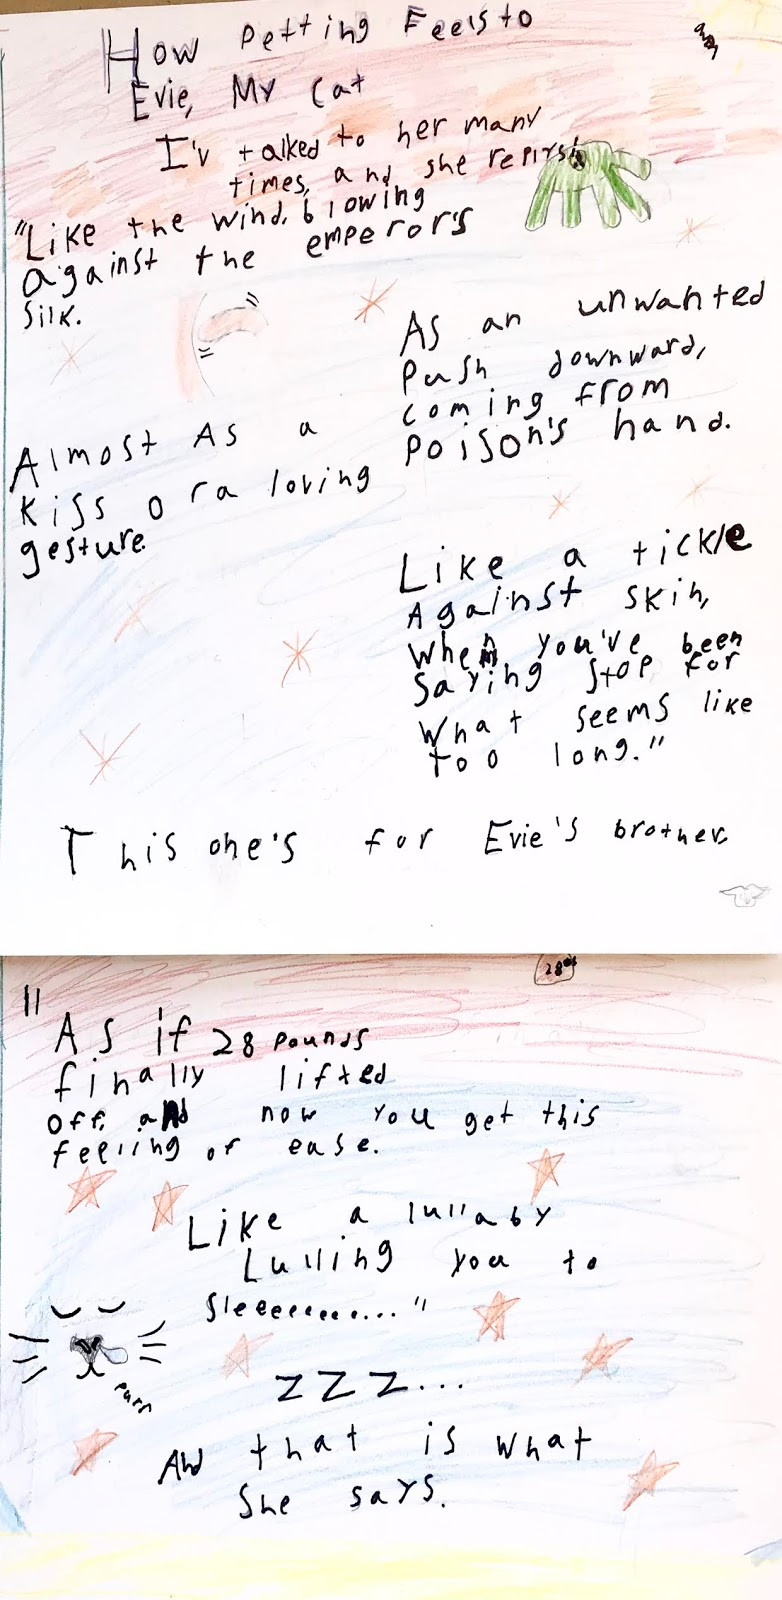 How Petting Feels to
Evie, My Cat
I'v talked to her many
times, and she replys:
"Like the wind, blowing
against the emperor's
silk.
As an unwanted
push downward,
coming from
poison's hand.
Almost As a
kiss or a loving
gesture.
Like a tickle
Against skin,
When you've been
saying stop for
What seems like
too long."
This one's for Evie's brother.
"
As if 28 pounds
finally lifted
off, and now you get this
feeling of ease.
Like a lullaby
Lulling you to
sleeeeeeee..."
purr
ZZZ...
And that is what
She says.